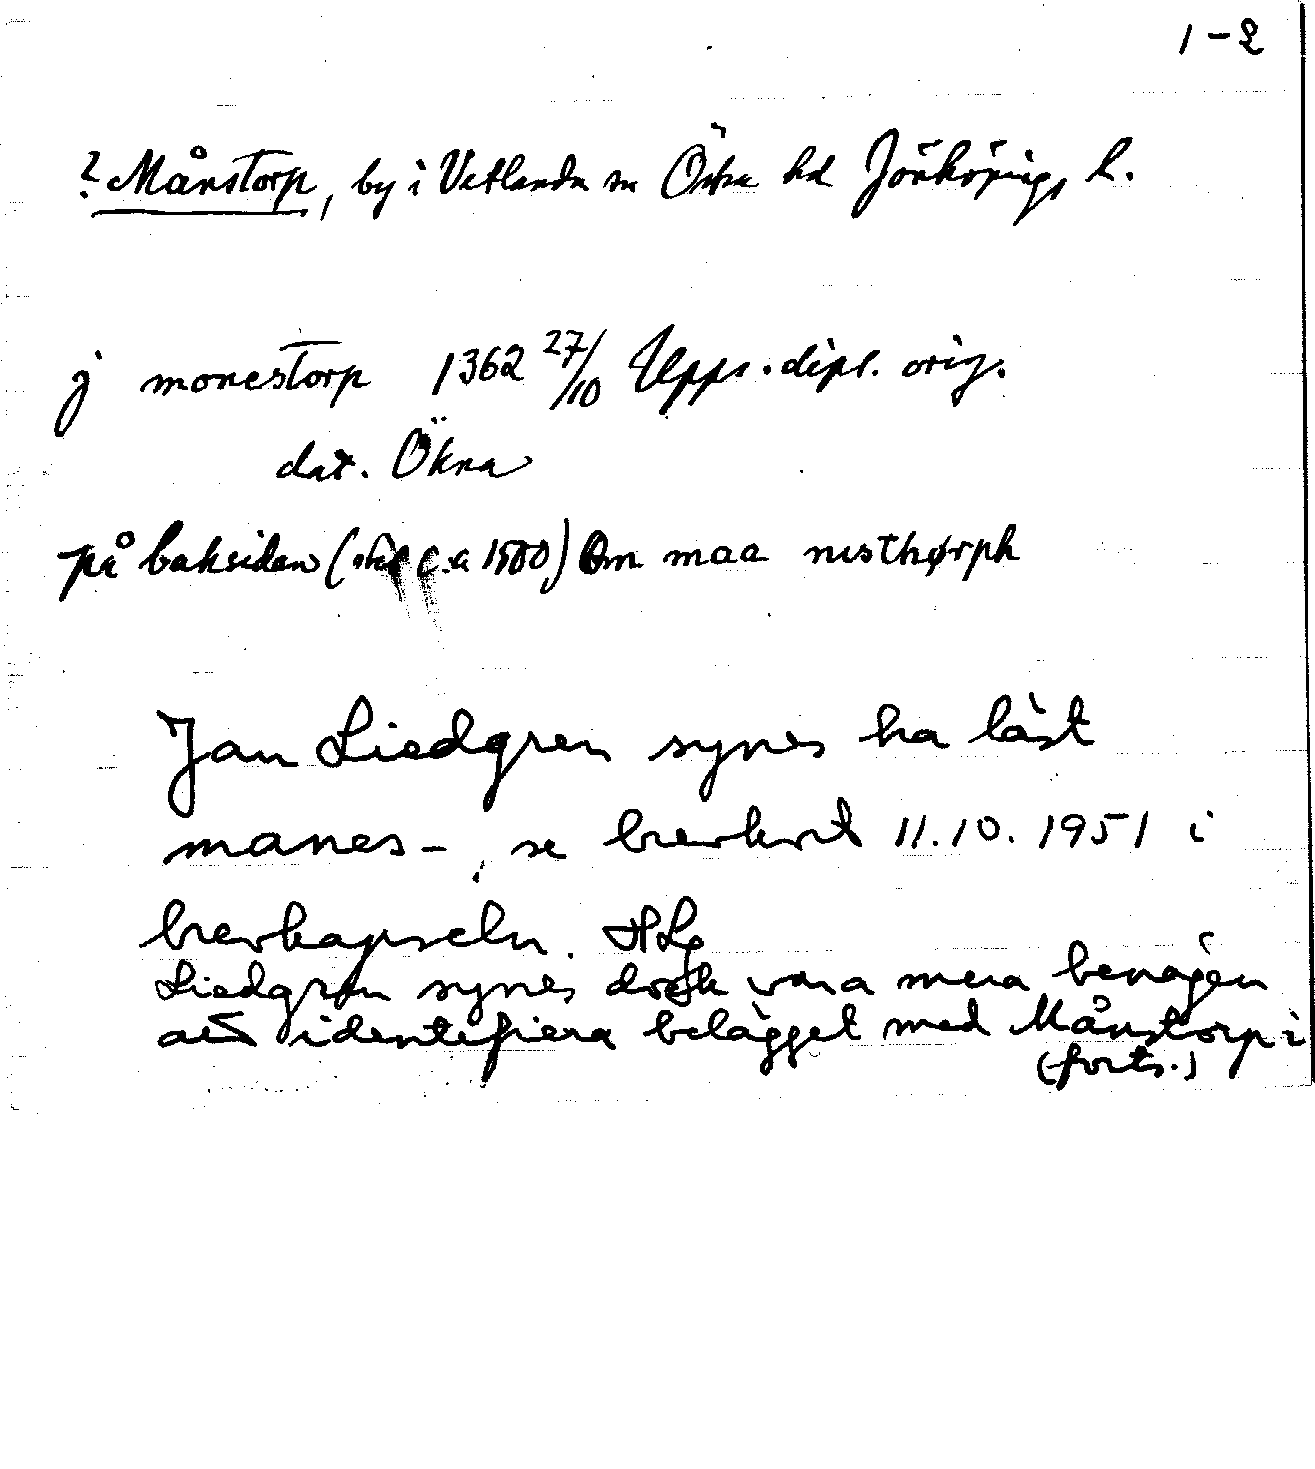 1-2
? Månstorp, by i Vetlanda sn Östra hd Jönköpings l.
j monestorp 1362 27/10 Upps. dipl. orig.
dat. Ökna
på baksidan (stil c.a 1500) Om maa nisthørph
Jan Liedgren synes ha läst
manes-, se brevkort 11.10.1951 i
brevkapseln. HLg
Liedgren synes dock vara mera benägen
att identifiera belägget med Månstorp i
(forts.)